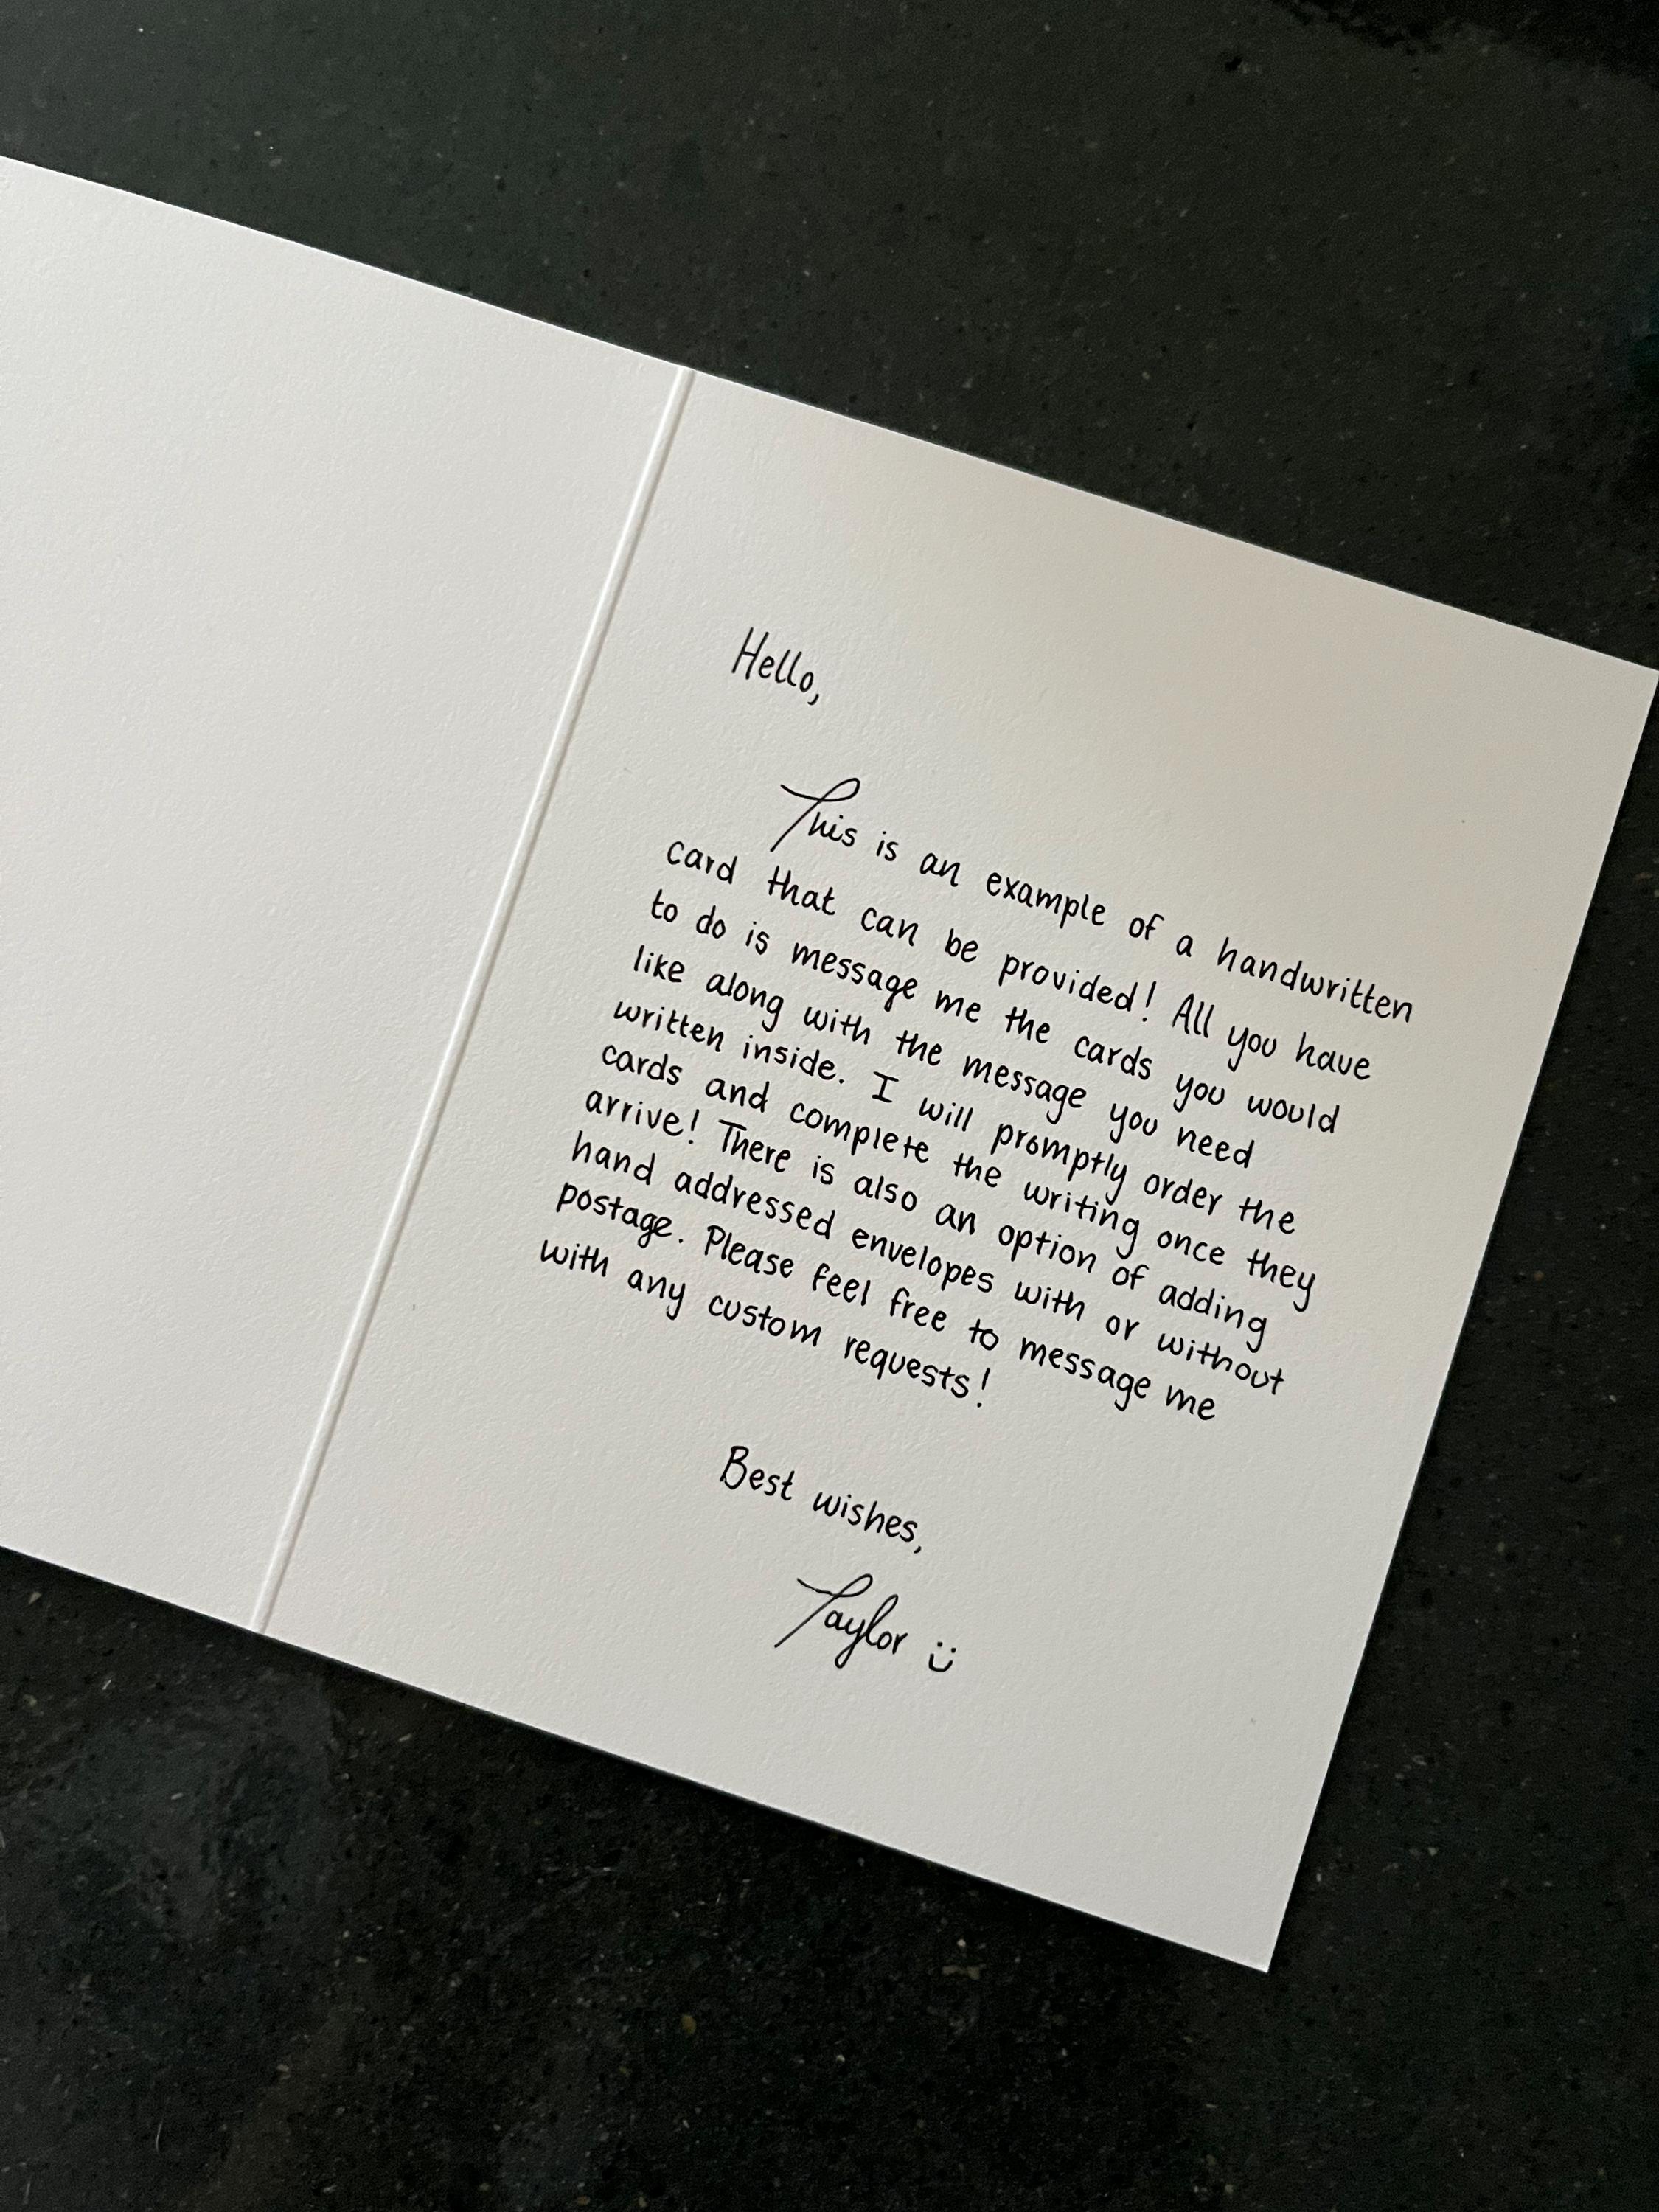 Hello,
This is an example of a handwritten
card that can be provided! All you have
to do is message me the cards you would
like along with the message you need
written inside. I will promptly order the
cards and complete the writing once they
arrive! There is also an option of adding
hand addressed envelopes with or without
postage. Please feel free to message me
with any custom requests!
Best wishes,
Taylor :)